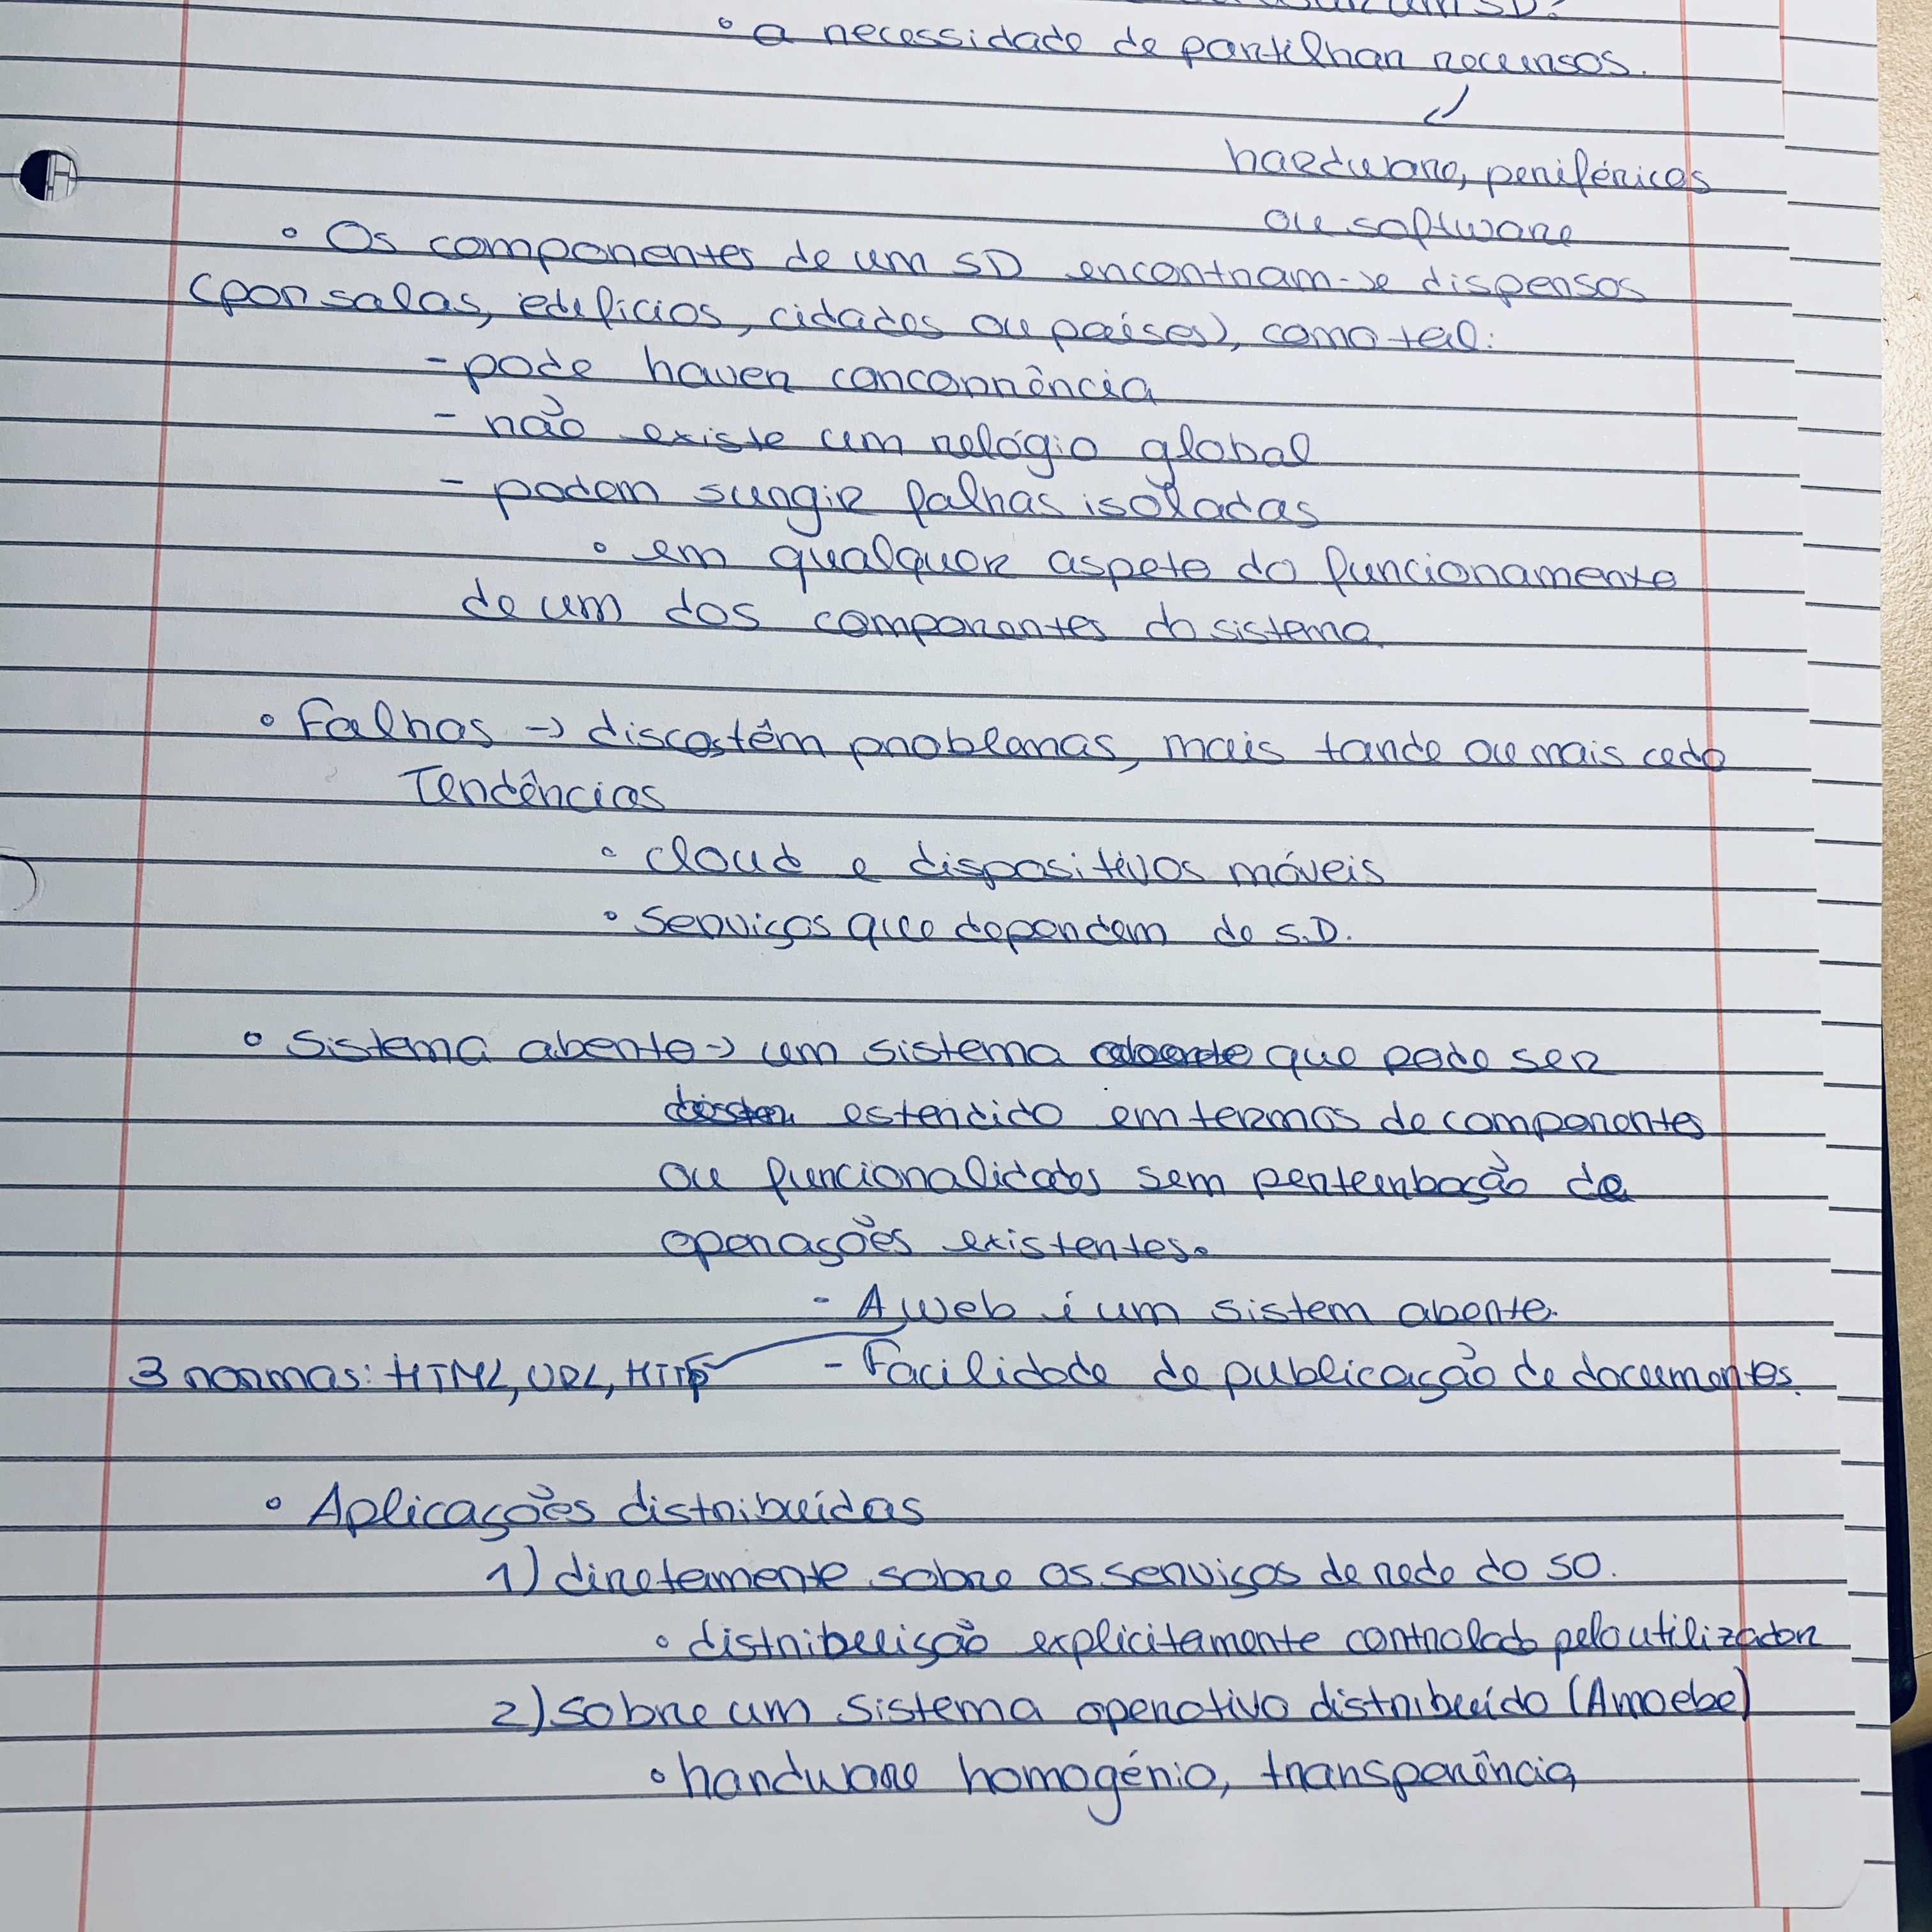 um SD?
• a necessidade de partilhar recursos.
hardware, periféricos
ou software
• Os componentes de um SD encontram-se dispersos
(por salas, edifícios, cidades ou países), como tal:
- pode haver concorrência
- não existe um relógio global
- podem surgir falhas isoladas
• em qualquer aspeto do funcionamento
de um dos componentes do sistema.
• Falhas → discos têm problemas, mais tarde ou mais cedo
Tendências
• Cloud e dispositivos móveis
• Serviços que dependem de S.D.
• Sistema aberto → um sistema que pode ser
estendido em termos de componentes
ou funcionalidades sem perturbação de
operações existentes.
- A web é um sistem aberto.
3 normas: HTML, URL, HTTP - Facilidade de publicação de documentos.
• Aplicações distribuídas
1) diretamente sobre os serviços de rede do SO.
• distribuição explicitamente controlado pelo utilizador
2) sobre um sistema operativo distribuído (Amoebe)
• hardware homogénio, transparência